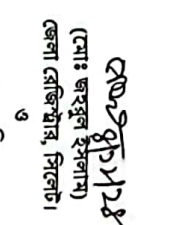 (মোঃ জহুরুল ইসলাম)
জেলা রেজিস্ট্রার, সিলেট।
ও